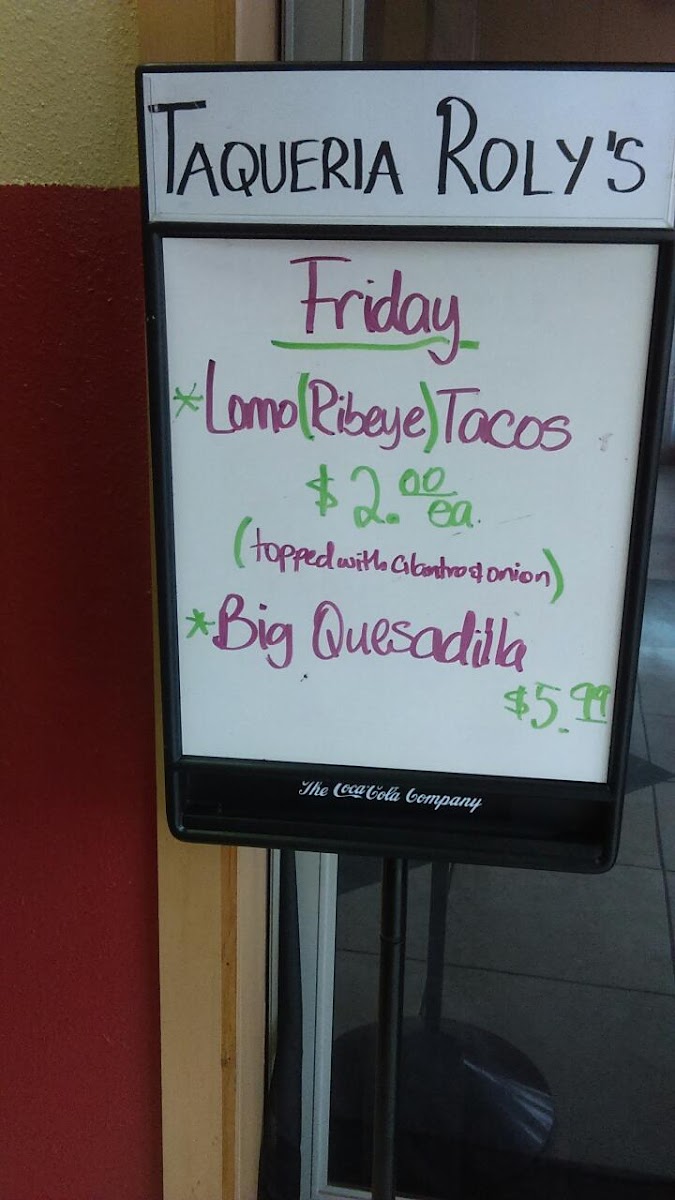 TAQUERIA ROLY'S
Friday
*Lomo(Ribeye)Tacos
$2.00 ea.
(topped with cilantro & onion)
*Big Quesadilla
$5.99
The Coca-Cola Company